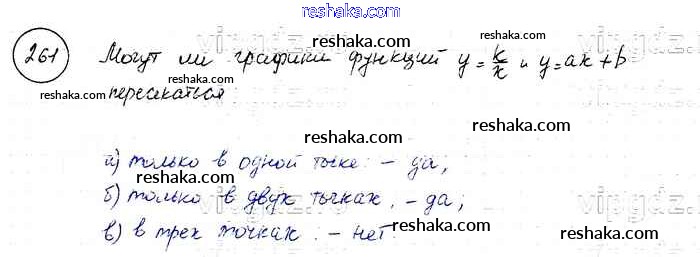 reshaka.com
reshaka.com
261 Могут ли графики функций y = k/x и y = ax + b
reshaka.com reshaka.com reshaka.com
пересекаться
reshaka.com
а) только в одной точке: - да;
reshaka.com
б) только в двух точках. - да;
reshaka.com
в) в трех точках: - нет.